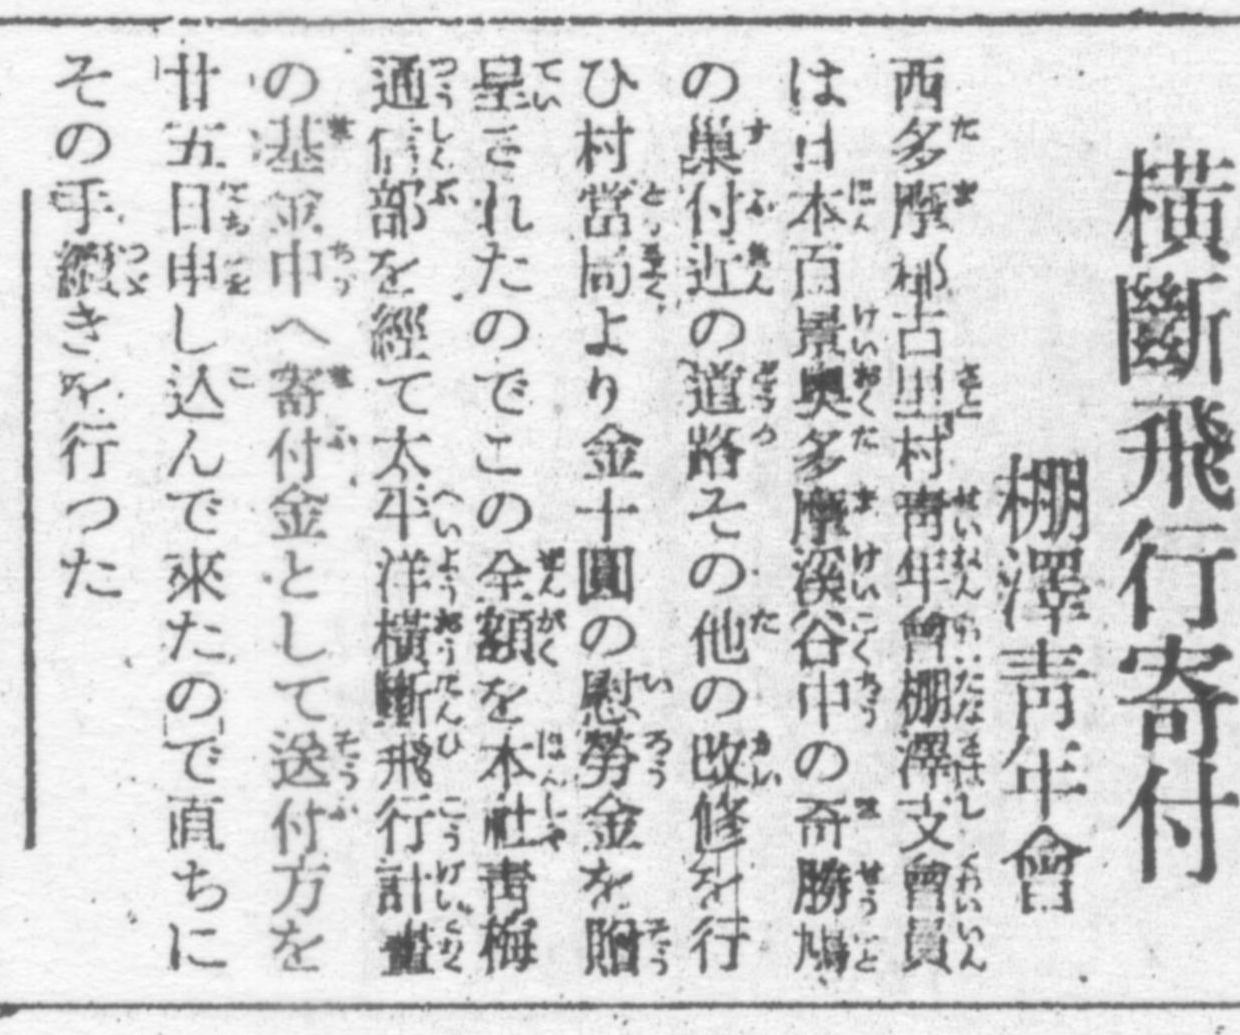 横斷飛行寄付
棚澤青年會
西多摩郡古里村青年會棚澤支會員
は日本百景奥多摩溪谷中の奇勝鳩
の巣付近の道路その他の改修を行
ひ村當局より金十圓の慰勞金を贈
呈されたのでこの全額を本社青梅
通信部を經て太平洋横斷飛行計畫
の基金中へ寄付金として送付方を
廿五日申し込んで來たので直ちに
その手續きを行つた